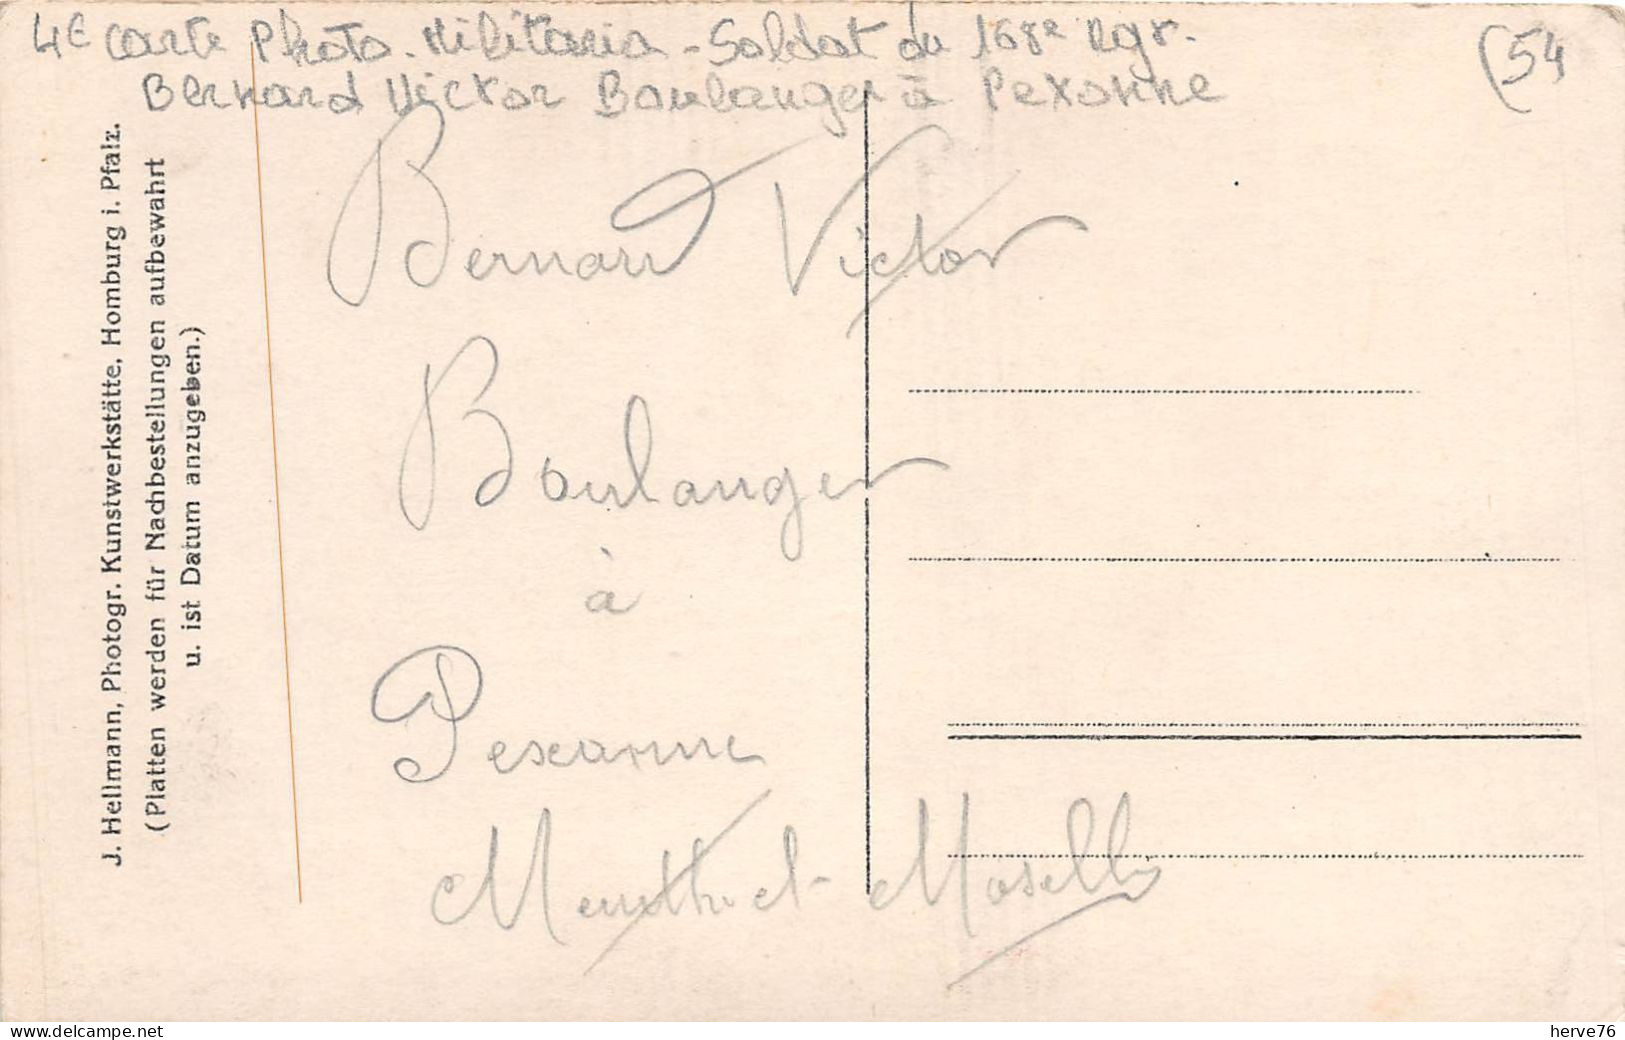 4€ Carte Photo - Militaria - Soldat du 168e Rgr.
Bernard Victor Boulanger à Pexonne
(54
J. Hellmann, Photogr. Kunstwerkstätte, Homburg i. Pfalz.
(Platten werden für Nachbestellungen aufbewahrt
u. ist Datum anzugeben.)
Bernard Victor
Boulanger
à
Pexonne
Meurthe et Moselle
delcampe.net
herve76